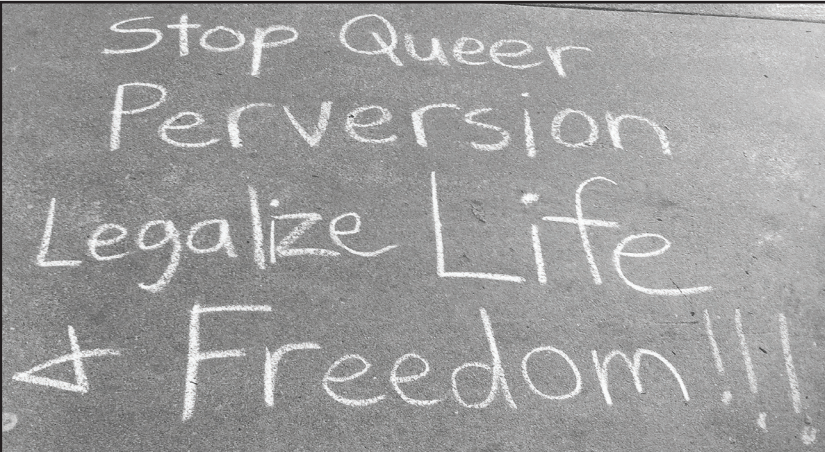 Stop Queer
Perversion
Legalize Life
& Freedom!!!